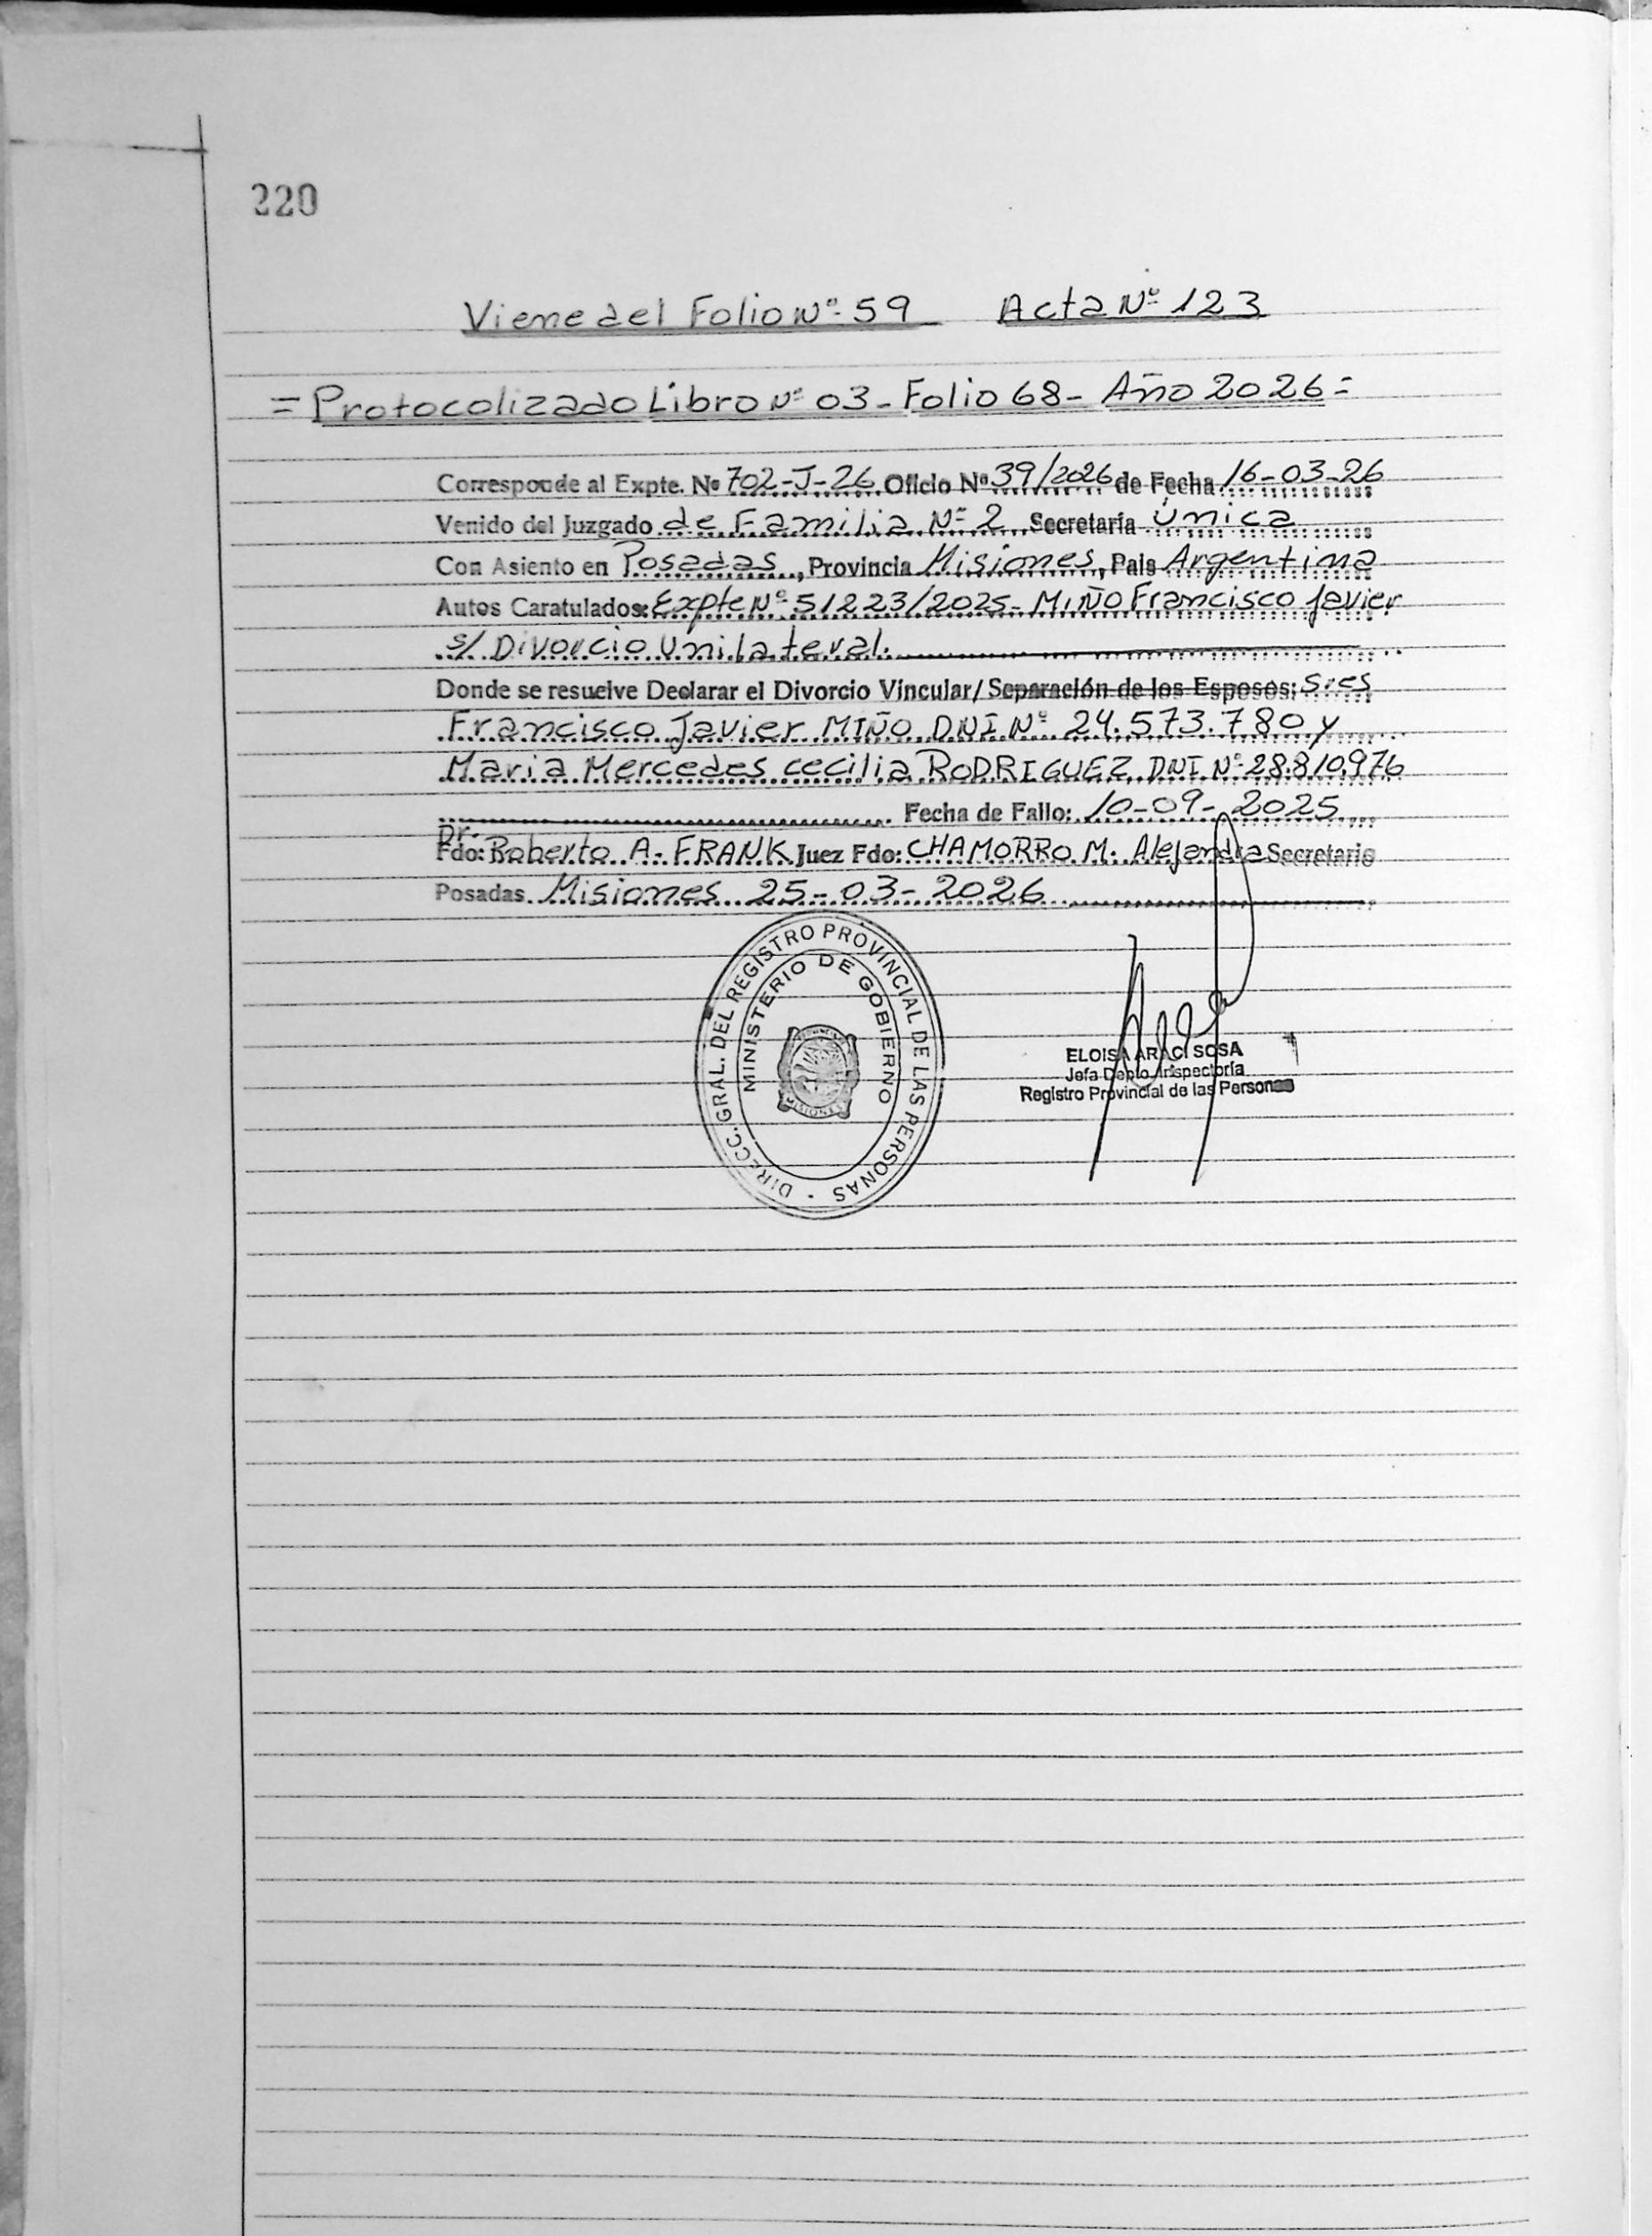 220
Viene del Folio Nº 59 Acta Nº 123
= Protocolizado Libro Nº 03 - Folio 68 - Año 2026 =
Corresponde al Expte. Nº 702-J-26 Oficio Nº 39/2026 de Fecha 16-03-26
Venido del Juzgado de Familia Nº 2 Secretaría Única
Con Asiento en Posadas, Provincia Misiones, Pais Argentina
Autos Caratulados: Expte Nº 51223/2025 - MIÑO Francisco Javier
s/ Divorcio Unilateral.
Donde se resuelve Declarar el Divorcio Vincular/ Separación de los Esposos: Sres
Francisco Javier MIÑO DNI Nº 24.573.780 y
Maria Mercedes cecilia RODRIGUEZ DNI Nº 28.810.976
Fecha de Fallo: 10-09-2025
Dr.
Fdo: Roberto A. FRANK Juez Fdo: CHAMORRO M. Alejandra Secretario
Posadas Misiones 25-03-2026
DIRECC. GRAL. DEL REGISTRO PROVINCIAL DE LAS PERSONAS
MINISTERIO DE GOBIERNO
MISIONES
ELOISA ARACI SOSA
Jefa Depto. Inspectoría
Registro Provincial de las Personas